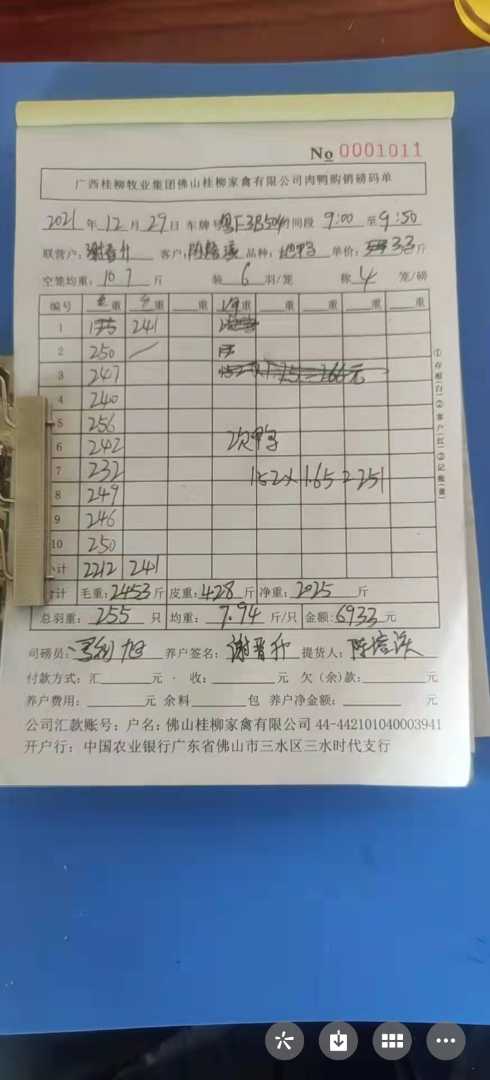 No 0001011
广西桂柳牧业集团佛山桂柳家禽有限公司肉鸭购销磅码单
2021 年 12 月 29 日 车牌 时间段 9:00 至 9:50
联营户: 谢晋升 客户: 品种: 单价: 3.3 斤
空笼均重: 10.7 斤 装 6 羽/笼 称 4 笼/磅
编号 毛重 毛重 重 重 重 重 重 重
1 241
2 250
3 247
4 240
5 256
6 242 次鸭子
7 232 152×1.65=251
8 249
9 246
10 250
小计 2212 241
合计 毛重: 2453 斤 皮重: 428 斤 净重: 2025 斤
总羽重: 255 只 均重: 7.94 斤/只 金额: 6933 元
司磅员: 养户签名: 谢晋升 提货人:
付款方式: 汇 元 · 收: 元 欠 (余)款: 元
养户费用: 元 余料 包 养户净金额: 元
公司汇款账号: 户名: 佛山桂柳家禽有限公司 44-442101040003941
开户行: 中国农业银行广东省佛山市三水区三水时代支行
①存根(白)②客户(红)③记账(黄)